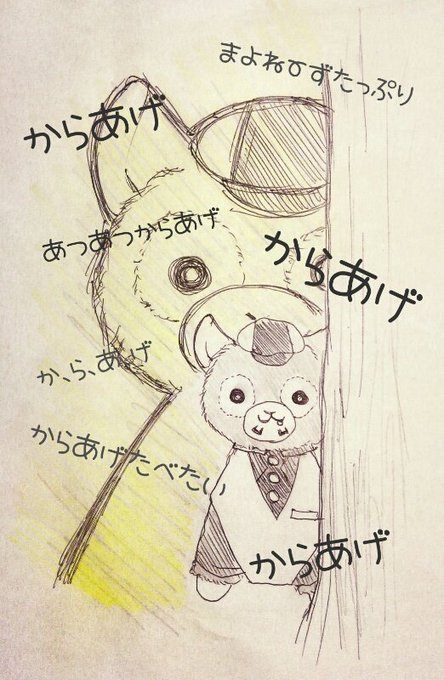 まよねひずたっぷり
からあげ
あつあつからあげ
からあげ
か、ら、あげ
からあげたべたい
からあげ